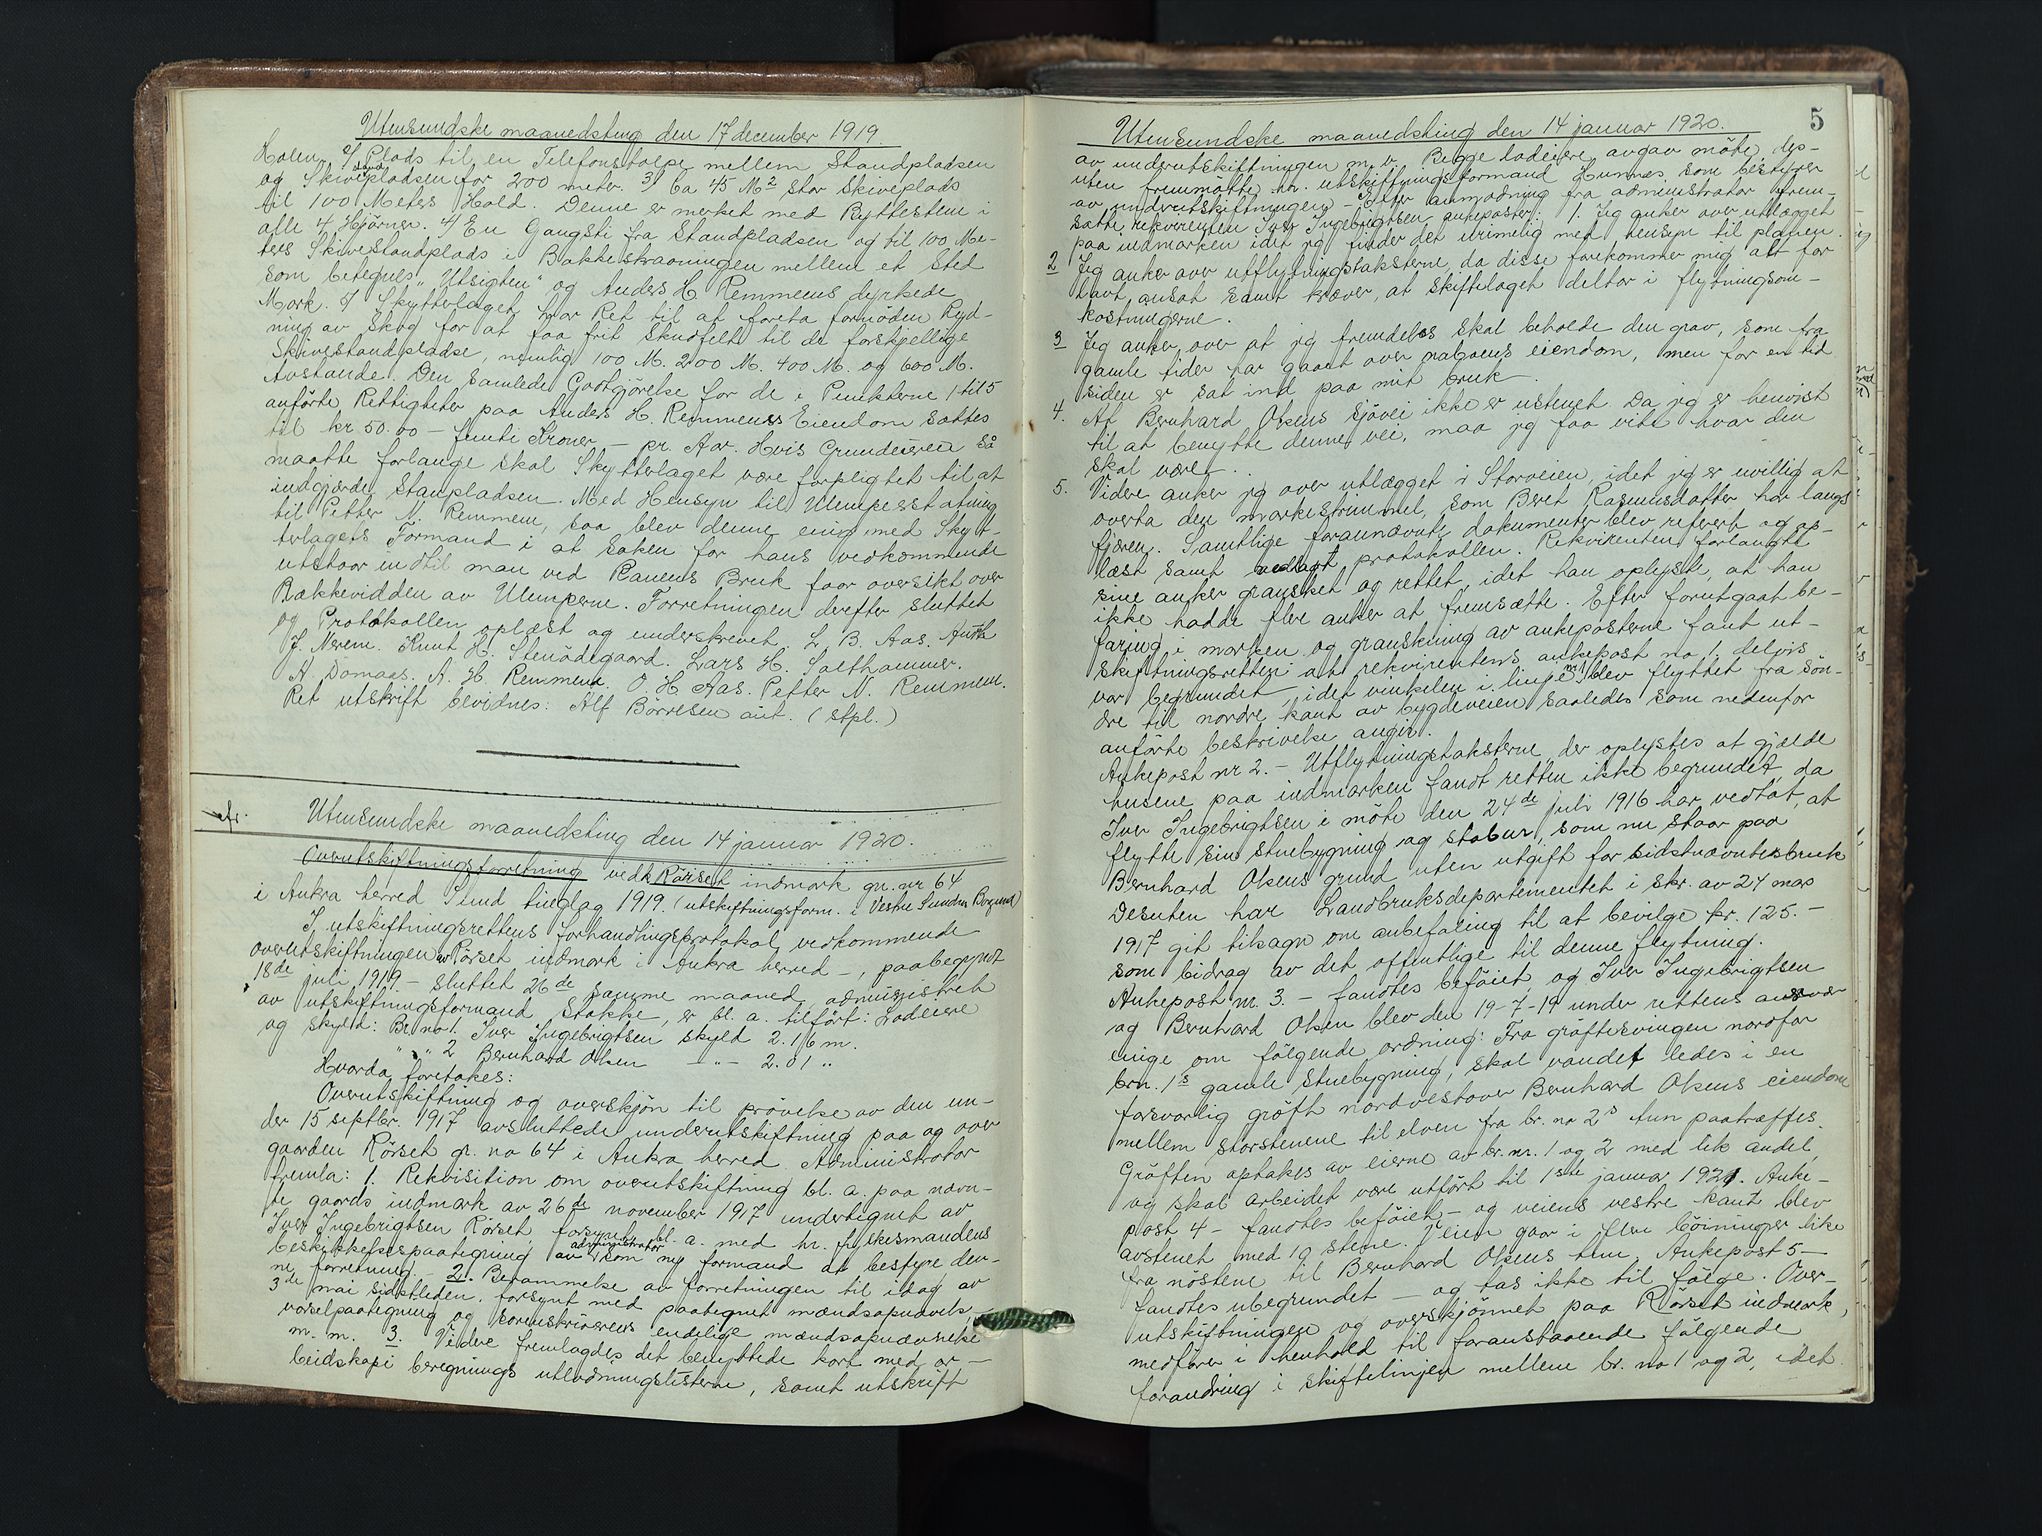 Utensundske maanedsting den 17 december 1919
Holen. 2/ Plads til en Telefonstolpe mellem Standpladsen
og Skivestandpladsen for 200 meter. 3/ Ca 45 M2 stor Skiveplads
til 100 Meters Hold. Denne er merket med Byttesten i
alle 4 Hjörner. 4/ En Gangsti fra Standpladsen og til 100 Me-
ters Skivestandplads i Bakkeskraaningen mellem et Sted
som betegnes "Utsigten" og Anders H Remmens dyrkede
Mark. 5/ Skytterlaget har Ret til at foreta fornöden Ryd-
ning av Skog for at faa frit Skudfelt til de forskjellige
Skivestandpladse, nemlig 100 M. 200 M. 400 M. og 600 M.
Avstande. Den samlede Godtgjörelse for de i Punkterne 1 til 5
anförte Rettigheter paa Anders H. Remmens Eiendom sattes
til kr 50.00 - femti Kroner - pr. Aar. Hvis Grundeieren så
maatte forlange skal Skytterlaget være forpligtet til at
indgjærde Stanpladsen. Med Hensyn til Ulempeerstatning
til Petter N. Remmem, saa blev denne enig med Skyt-
terlagets Formand i at saken for hans vedkommende
utstaar indtil man ved Banens Bruk faar oversikt over
Rækkevidden av Ulemperne. Forretningen derefter sluttet
og Protokollen oplæst og underskrevet. L. B. Aas. Anth
J. Nerem. Knut H. Stenödegaard. Lars H. Salthammer.
A Domaas. A. H. Remmem. O. H Aas. Petter N. Remmem.
Ret utskrift bevidnes: Alf Börresen aut. (stpl.)
Utensundske maanedsting den 14 januar 1920.
Overutskiftningsforretning vedk Rörset indmark gn. nr 64
i Aukra herred Sund tinglag 1919. (utskiftningsform. i Vestre Sunder Bogund)
I utskiftningsrettens forhandlingsprotokol, vedkommende
overutskiftningen av Rörset indmark i Aukra herred -, paabegyndt
18de juli 1919 - sluttet 26de samme maaned, administreret
av utskiftningsformand Stokke, er bl. a. tilfört: Lodeiere
og skyld: Br. no 1. Iver Ingebrigtsen skyld 2.16 m.
" " 2 Bernhard Olsen - " - 2.01 "
Hvorda foretokes:
Overutskiftning og overskjön til prövelse av den un-
der 15 septbr. 1917 avsluttede underutskiftning paa og over
gaarden Rörset gr. no 64 i Aukra herred. Administrator
fremla: 1. Rekvisition om overutskiftning bl. a. paa nævn-
te gaards indmark av 26de november 1917 undertegnet av
Iver Ingebrigtsen Rörset, forsynt bl. a. med hr. fylkesmandens
beskikkelsespaategning av administrator som ny formand at bestyre den-
ne forretning - 2. Berammelse av forretningen til idag av
3de mai sidstleden, forsynt med paategnet mændsopnævnelse,
varselpaategning og sorenskriverens endelige mændsopnævnelse
m. m. 3. Videre fremlagdes det benyttede kort med ar-
beidskopi beregnings utlodningslisterne, samt utskrift
5
Utensundske maanedsting den 14 januar 1920.
av underutskiftningen m. v. Begge lodeiere avgav möte, des-
uten fremmötte hr. utskiftningsformand Hunnes, som bestyrer
av underutskiftningen - Efter anmodning fra administrator frem-
satte rekvirenten Iver Ingebrigtsen ankeposter: 1. Jeg anker over utlægget
paa indmarken idet jeg finder det urimelig med hensyn til planen.
2 Jeg anker over utflytningstaksterne, da disse forekommer mig alt for
lavt ansat samt kræver, at skiftelaget deltar i flytningsom-
kostningerne.
3 Jeg anker over at jeg fremdeles skal beholde den grav, som fra
gamle tider har gaaet over naboens eiendom, men for en tid
siden er sat ind paa mit bruk
4. At Bernhard Olsens sjövei ikke er utstenet. Da jeg er henvist
til at benytte denne vei, maa jeg faa vite hvor den
skal være.
5. Videre anker jeg over utlægget i Storveien, idet jeg er uvillig at
overta den markestrimmel, som Beret Rasmusdatter har langs
fjæren. Samtlige forannævnte dokumenter blev referert og op-
læst samt vedlagt protokollen. Rekvirenten forlangte
sine anker gransket og rettet, idet han oplyste, at han
ikke hadde flere anker at fremsætte. Efter forutgaat be-
faring i marken og granskning av ankeposterne fant ut-
skiftningsretten at rekvirentens ankepost no 1. delvis
var begrundet, idet vinkelen i linje nr 1 blev flyttet fra sön-
dre til nordre kant av bygdeveien saaledes som nedenfor
anförte beskrivelse angir.
Ankepost nr 2. - Utflytningstaksterne der oplystes at gjælde
husene paa indmarken fandt retten ikke begrundet, da
Iver Ingebrigtsen i möte den 24de juli 1916 har vedtat, at
flytte sin stuebygning og stabur, som nu staar paa
Bernhard Olsens grund uten utgift for sidstnævntes bruk
Desuten har Landbruksdepartementet i skr. av 24 mars
1917 git tilsagn om anbefaling til at bevilge kr. 125. -
som bidrag av det offentlige til denne flytning.
Ankepost nr. 3. - fandtes beföiet, og Iver Ingebrigtsen
og Bernhard Olsen blev den 19-7-19 under rettens ansvar
enige om fölgende ordning: Fra gröftesvingen nordfor
brn. 1s gamle stuebygning, skal vandet ledes i en
forsvarlig gröft nordvestover Bernhard Olsens eiendom
mellem storstenene til elven fra br. no 2s tun paatræffes.
Gröften optakes av eierne av br. nr. 1 og 2 med lik andel,
og skal arbeidet være utfört til 1ste januar 1921. Anke-
post 4 - fandtes beföiet - og veiens vestre kant blev
avstenet med 19 stene. Veien gaar i flere böininger like
fra nöstene til Bernhard Olsens tun. Ankepost 5 -
fandtes ubegrundet - og tas ikke til fölge. Over-
utskiftningen og overskjönnet paa Rörset indmark,
medförer i henhold til foranstaaende fölgende
forandring i skiftelinjen mellem br. no 1 og 2, idet